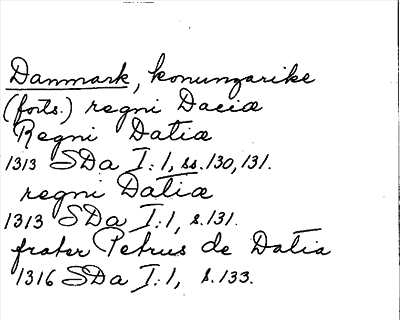 Danmark, konungarike
(forts.) regni Daciæ
Regni Datiæ
1313 SDa I:1, ss.130,131.
regni Datiæ
1313 SDa I:1, s.131.
frater Petrus de Datia
1316 SDa I:1, s.133.